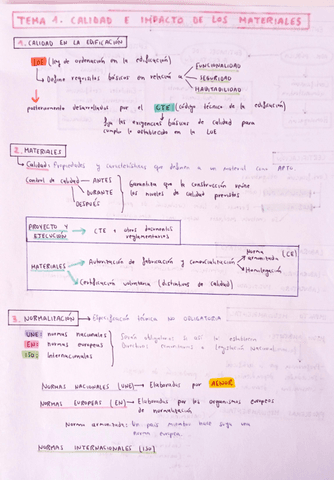 TEMA 1. CALIDAD E IMPACTO DE LOS MATERIALES
1. CALIDAD EN LA EDIFICACIÓN
LOE (ley de ordenación en la edificación)
Define requisitos básicos en relación a
FUNCIONALIDAD
SEGURIDAD
HABITABILIDAD
posteriormente desarrollados por el CTE (código técnico de la edificación)
fija las exigencias básicas de calidad para
cumplir lo establecido en la LOE
2. MATERIALES
Calidad: Propiedades y características que definen a un material como APTO
Control de calidad
ANTES
DURANTE
DESPUÉS
Garantiza que la construcción reúne
los niveles de calidad previstos
PROYECTO Y
EJECUCIÓN
CTE u otros documentos
reglamentarios
MATERIALES
Autorización de fabricación y comercialización
Norma
armonizada (CE)
Homologación
Certificación voluntaria (distintivos de calidad)
3. NORMALIZACIÓN
Especificación técnica NO OBLIGATORIA
UNE: normas nacionales
EN: normas europeas
ISO: internacionales
Serán obligatorias si así lo establecen
Directivas comunitarias o legislación Nacional
NORMAS NACIONALES (UNE) Elaboradas por AENOR
NORMAS EUROPEAS (EN) Elaboradas por los organismos europeos
de normalización
Norma armonizada: Un país miembro hace suya una
norma europea
NORMAS INTERNACIONALES (ISO)